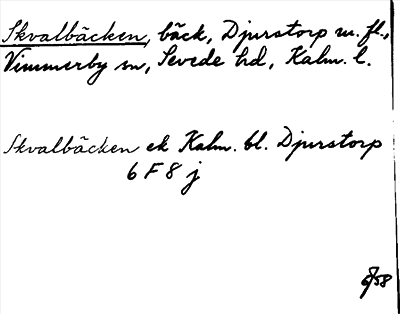 Skvalbäcken, bäck, Djurstorp m. fl.,
Vimmerby sn, Sevede hd, Kalm. l.
Skvalbäcken ek Kalm. bl. Djurstorp
6 F 8 j